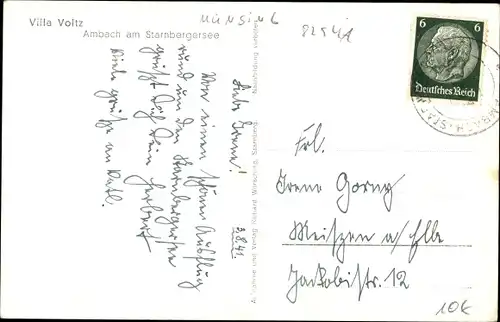 Villa Voltz
Ambach am Starnbergersee
münsing
82541
6 6
Deutsches Reich
3.8.41.
Liebe Irene!
Von einem schönen Ausflug
rund um den Starnbergersee
grüßt Dich Dein Herbert
Viele Grüße an Kätl.
Frl.
Irene Gorny
Meißen a/Elbe
Jackobistr. 12
10k